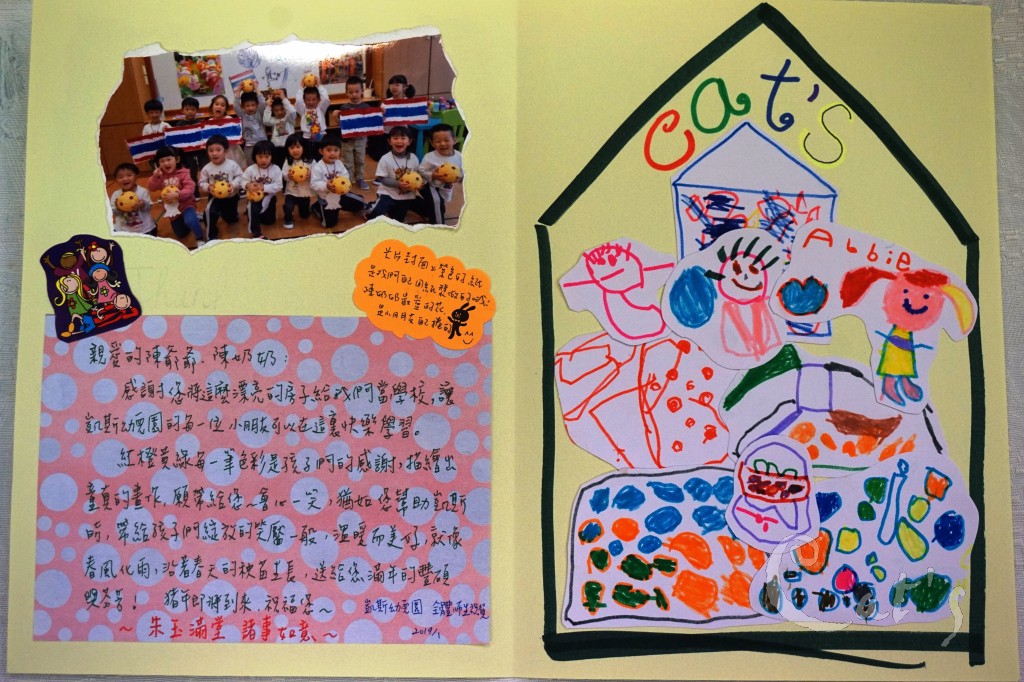 卡片封面上紫色的紙
是我們自
陳奶奶最愛的花
是小朋友自己捲的
親愛的陳爺爺、陳奶奶:
感謝您將這麼漂亮的房子給我們當學校,讓
凱斯幼兒園的每一位小朋友可以在這裏快樂學習。
紅橙黃綠每一筆色彩是孩子們的感謝,描繪出
童真的畫作,願帶給您~會心一笑,猶如您幫助凱斯
時,帶給孩子們綻放的笑靨一般,溫暖而美好,就像
春風化雨,沿著春天的秧苗生長,送給您滿年的豐碩
與芬芳! 豬年即將到來,祝福您~
凱斯幼兒園 全體師生敬賀
2019/1
~朱玉滿堂 諸事如意~
Cat's
Abbie
Cat's